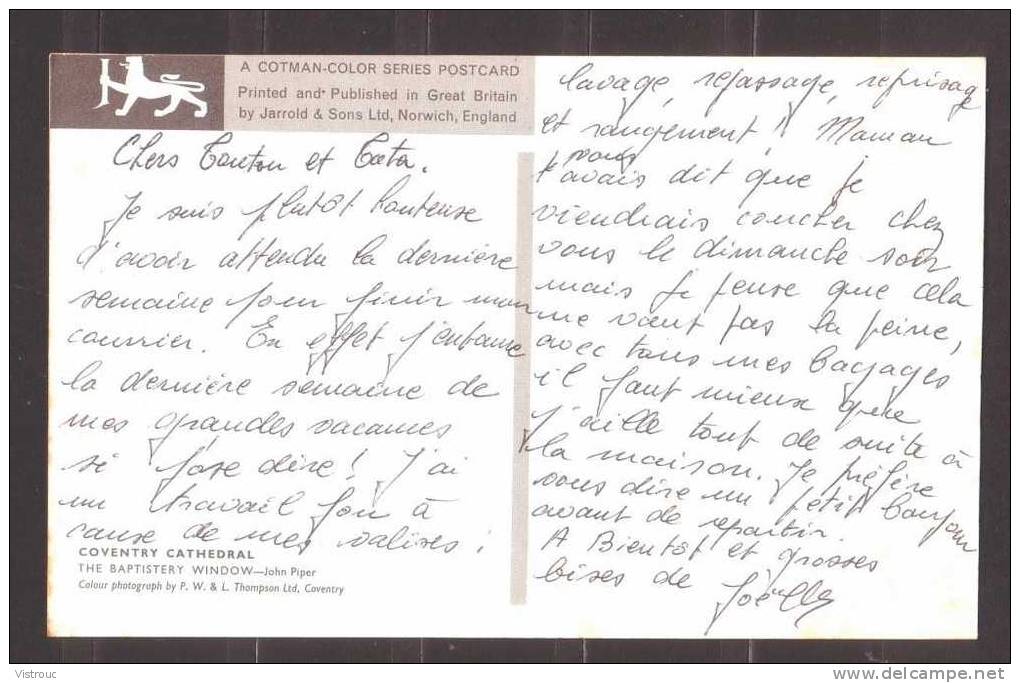 A COTMAN-COLOR SERIES POSTCARD
Printed and Published in Great Britain
by Jarrold & Sons Ltd, Norwich, England
Chers Tonton et Tata.
Je suis plutôt honteuse
d'avoir attendu la dernière
semaine pour finir mon
courrier. En effet j'entame
la dernière semaine de
mes grandes vacances
si j'ose dire! J'ai
un travail fou à
cause de mes valises:
COVENTRY CATHEDRAL
THE BAPTISTERY WINDOW—John Piper
Colour photograph by P. W. & L. Thompson Ltd, Coventry
lavage, repassage, reprisage
et rangement! Maman
vous
t'avais dit que je
viendrais coucher chez
vous le dimanche soir
mais je pense que cela
ne vaut pas la peine,
avec tous mes bagages
il faut mieux que
j'aille tout de suite à
la maison. Je préfère
vous dire un petit bonjour
avant de repartir.
A Bientôt et grosses
bises de Joëlle
Vistrouc
delcampe.net